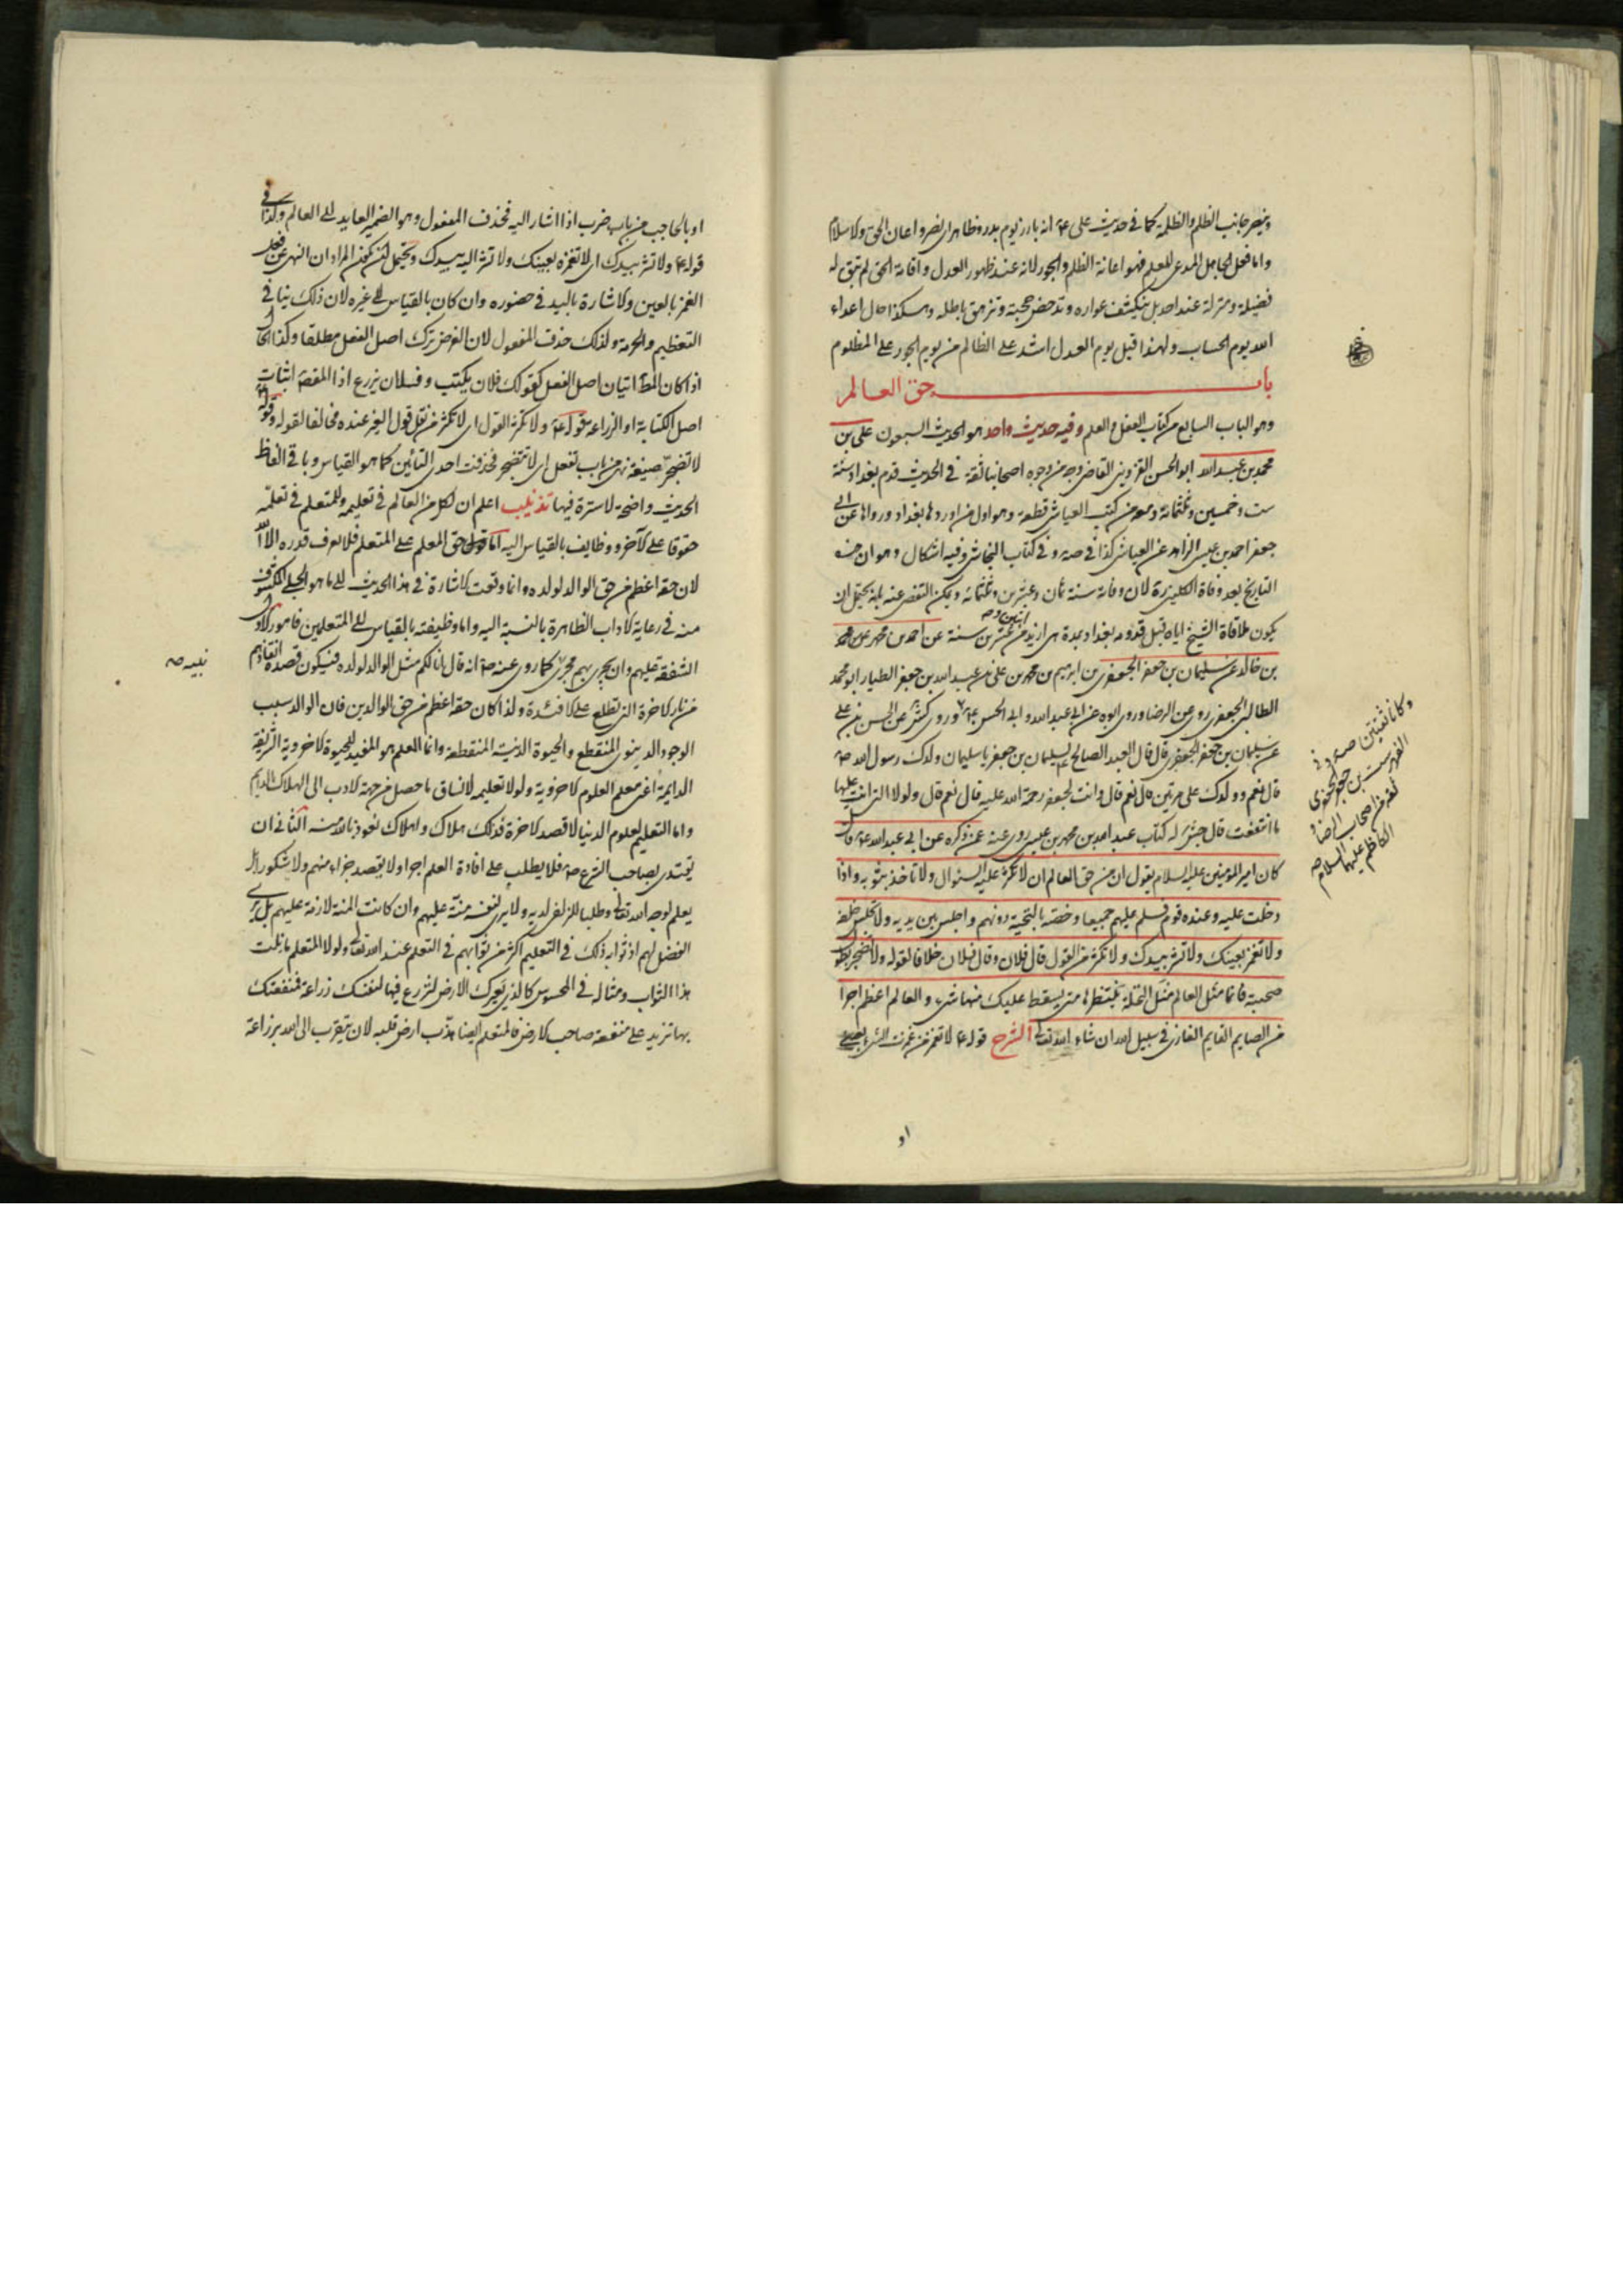 وينصر جانب الظلم والظلمة كما في حديث على ع انه بارز يوم بدر وظاهر اى نصر واعان الحق والاسلام
واما فعل الجاهل المدعى للعلم فهو اعانة الظلم والجور لانه عند ظهور العدل واقامة الحق لم تبق له
فضيلة ومنزلة عند احد بل ينكشف عواره وتدحض حجته وتزهق باطله وهكذا حال اعداء
الله يوم الحساب ولهذا قيل يوم العدل اشد على الظالم من يوم الجور على المظلوم
باب حق العالم
وهو الباب السابع من كتاب العقل والعلم وفيه حديث واحد هو الحديث السبعون على بن
محمد بن عبد الله ابو الحسن القزوينى القاضى وجه من وجوه اصحابنا ثقة في الحديث قدم بغداد سنة
ست وخمسين وثلثمائة ومعه من كتب العياشى قطعة وهو اول من اوردها بغداد ورواها عن ابى
جعفر احمد بن عيسى الزاهد عن العياشى كذا في صه وفي كتاب النجاشى وفيه اشكال وهو ان هذه
التاريخ بعد وفاة الكلينى ره لان وفاته سنة ثمان وعشرين وثلثمائة ويمكن التفصى عنه بانه يحتمل ان
يكون ملاقاة الشيخ اياه قبل قدومه بغداد بمدة هى ازيد من عشرين سنة عن احمد بن محمد عن محمد
بن خالد عن سليمان بن جعفر الجعفرى بن ابرهيم بن محمد بن على بن عبد الله بن جعفر الطيار ابو محمد
الطالبى الجعفرى روى عن الرضا وروى ابوه عن ابى عبد الله وابى الحسن ع وروى كش عن الحسن بن على
عن سليمان بن جعفر الجعفرى قال قال العبد الصالح لسليمان بن جعفر يا سليمان ولدك رسول الله ص
قال نعم وولدك على مرتين قال نعم قال وانت لجعفر رحمة الله عليه قال نعم قال ولولا الذى انت عليه
ما انتفعت قال جش له كتاب عبد الله بن محمد بن عيسى روى عنه عمن ذكره عن ابى عبد الله ع قال
كان امير المؤمنين عليه السلام يقول ان من حق العالم ان لا تكثر عليه السئوال ولا تاخذ بثوبه واذا
دخلت عليه وعنده قوم فسلم عليهم جميعا وخصه بالتحية دونهم واجلس بين يديه ولا تجلس خلفه
ولا تغمز بعينك ولا تشر بيدك ولا تكثر من القول قال فلان وقال فلان خلافا لقوله ولا تضجر بطول
صحبته فانما مثل العالم مثل النخلة تنتظرها متى يسقط عليك منها شىء والعالم اعظم اجرا
من الصايم القايم الغازى في سبيل الله ان شاء الله تعالى الشرح قوله ع لا تغمز من غمزت الشىء بعينى
او
وكانا ثقتين صه وفى
الفهرست بن جعفر الجعفرى
ثقة من اصحاب الرضا و
الكاظم عليهما السلام صه
او بالحاجب من باب ضرب اذا اشار اليه فحذف المفعول وهو الضمير العايد الى العالم وكذا في
قوله ع ولا تشر بيدك اى لا تغمزه بعينك ولا تشر اليه بيدك ويحتمل ان يكون المراد ان النهى عن فعل
الغمز بالعين والاشارة باليد في حضوره وان كان بالقياس الى غيره لان ذلك ينافى
التعظيم والحرمة ولذلك حذف المفعول لان الغرض ترك اصل الفعل مطلقا وكذا الحال
اذا كان المط اتيان اصل الفعل كقولك فلان يكتب وفلان يزرع اذا المقص اثبات
اصل الكتابة او الزراعة قوله ع ولا تكثر القول اى لا تكثر من نقل قول الغير عنده مخالفا لقوله وقوله ع
لا تضجر صيغة نهى من باب تفعل اى لا تتضجر فحذفت احدى التائين كما هو القياس وباقى الفاظ
الحديث واضحة لا سترة فيها تذنيب اعلم ان لكل من العالم في تعليمه وللمتعلم في تعلمه
حقوقا على الآخر ووظايف بالقياس اليه اما حق المعلم على المتعلم فلا يعرف قدره الا الله
لان حقه اعظم من حق الوالد لولده وانما وقعت الاشارة في هذا الحديث الى ما هو الجلى المكشوف
منه في رعاية الاداب الظاهرة بالنسبة اليه واما وظيفته بالقياس الى المتعلمين فامور الاول
الشفقة عليهم وان يجرى بهم مجرى كما روى عنه ص انه قال انا لكم مثل الوالد لولده فيكون قصده انقاذهم
من نار الاخرة التى تطلع على الافئدة ولذا كان حقه اعظم من حق الوالدين فان الوالد سبب
الوجود الدنيوى المنقطع والحيوة الدنية المنقطعة وانما المعلم هو المفيد للحيوة الاخروية الشريفة
الدايمة اعنى معلم العلوم الاخروية ولولا تعليمه لانساق ما حصل من جهة الاب الى الهلاك الدايم
واما التعليم لعلوم الدنيا لا قصد الاخرة فذلك هلاك واهلاك نعوذ بالله منه الثانى ان
يقتدى بصاحب الشرع ص فلا يطلب على افادة العلم اجرا ولا يقصد جزاء منهم ولا شكورا بل
يعلم لوجه الله تعالى وطلبا للزلفى لديه ولا يرى لنفسه منة عليهم وان كانت المنة لازمة عليهم بل يرى
الفضل لهم اذ ثوابه ذلك في التعليم اكثر من ثوابهم في التعلم عند الله تعالى ولولا المتعلم ما نلت
هذا الثواب ومثاله في المحسوس كالذى يعيرك الارض لتزرع فيها لنفسك زراعة فمنفعتك
بها تزيد على منفعة صاحب الارض فالمتعلم ايضا هذب ارض قلبه لان يتقرب الى الله بزراعة
بنيه صه